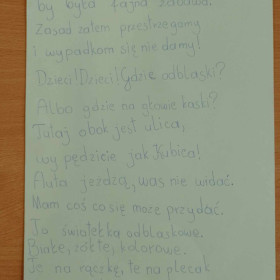 by była fajna zabawa.
Zasad zatem przestrzegamy
i wypadkom się nie damy!
Dzieci! Dzieci! Gdzie odblaski?
Albo gdzie na głowie kaski?
Tutaj obok jest ulica,
wy pędzicie jak Kubica!
Auta jeżdżą, was nie widać.
Mam coś co się może przydać.
Ja światełka odblaskowe.
Białe, żółte, kolorowe.
Te na rączkę, te na plecak